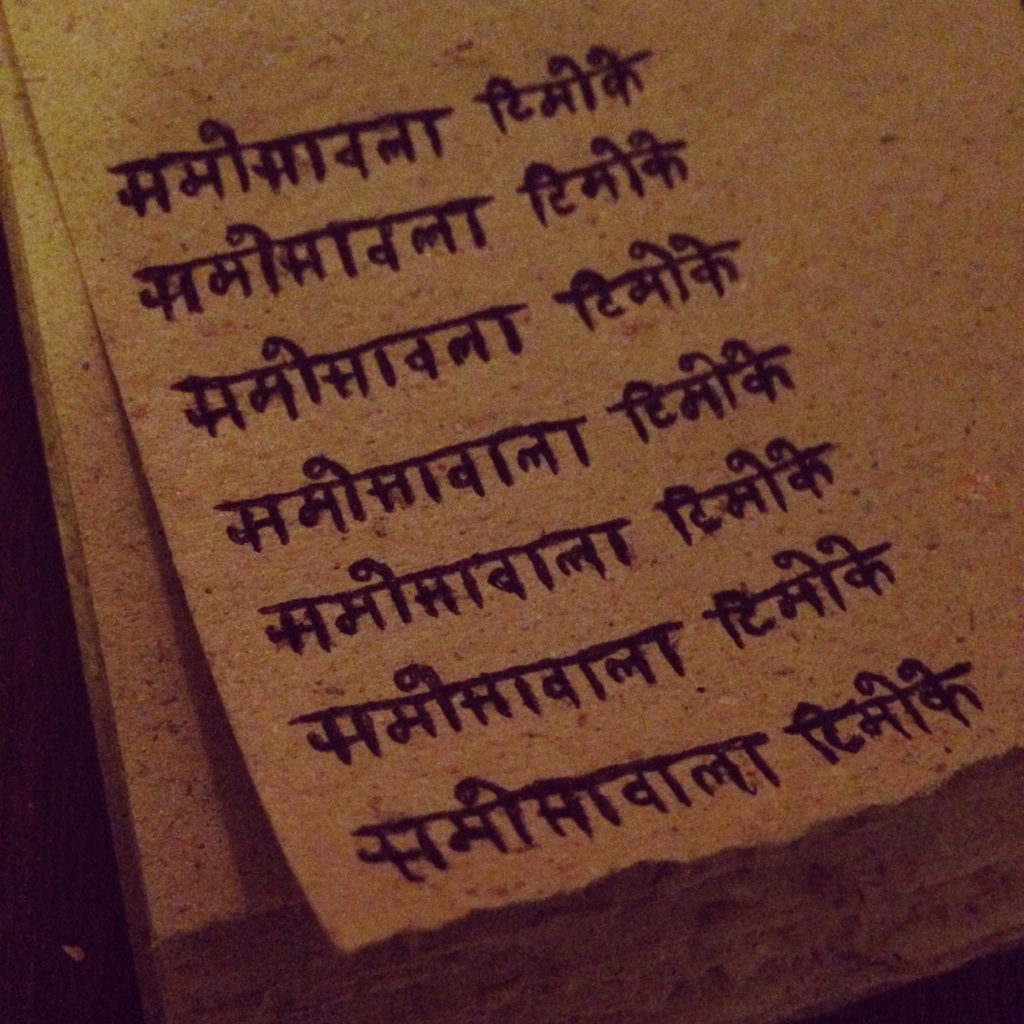 समोसावला टिमोके
समोसावला टिमोके
समोसावला टिमोके
समोसावाला टिमोके
समोसावाला टिमोके
समोसावाला टिमोके
समोसावाला टिमोके